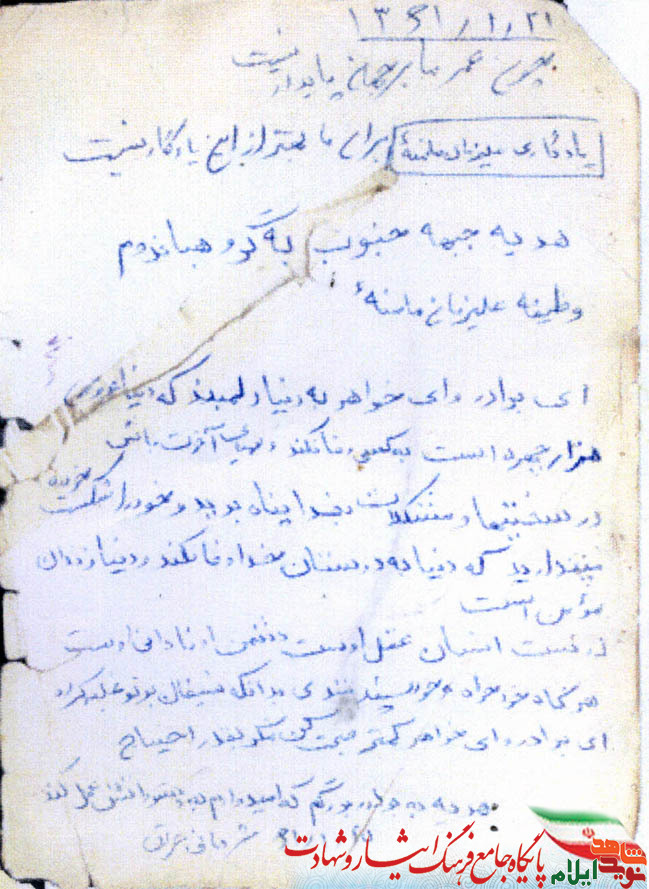 ۱۳۶۱/۱/۲۱
چون عمر ما بر جهان پایدار نیست
یادگاری علیزمان ماسنهٔ برای ما بهتر از این یادگار نیست
هدیه جبهه جنوب به گروهبان دوم
وظیفه علیزمان ماسنهٔ
ای برادر و ای خواهر به دنیا دل مبند که دنیا عروس
هزار چهره است به کسی وفا نکند آخرت باش
در سختیها و مشکلات بخدا پناه برید و خود را شکست خورده
نپندارید که دنیا به دوستان خدا وفا نکند دنیا زندان
مؤمن است
دوست انسان عقل اوست دشمن او نادانی اوست
هرگاه خودخواه و خودپسند شدی بدانکه شیطان بر تو غلبه کرده
ای برادر و ای خواهر کمتر صحبت کن مگر بقدر احتیاج
هدیه به برادر بزرگم که امیدوارم به عمل کند
پایگاه جامع فرهنگ ایثار و شهادت
نوید شاهد
ایلام